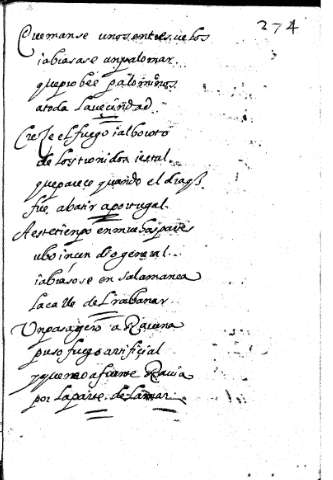 274
Quemanse unos entresuelos
iabrasase un palomar
que probeé palominos
a toda la uecindad
Creçe el fuego i alboroto
de los tronidos ies tal
que parece quando el
fue abatir a portugal
A este tienpo en muchas partes
ubo incendio general
iabrasose en salamanca
la calle de Lirabanar
Un pasagero a Rauena
puso fuego artificial
y quemo a fuerte Rauia
por la parte de la mar